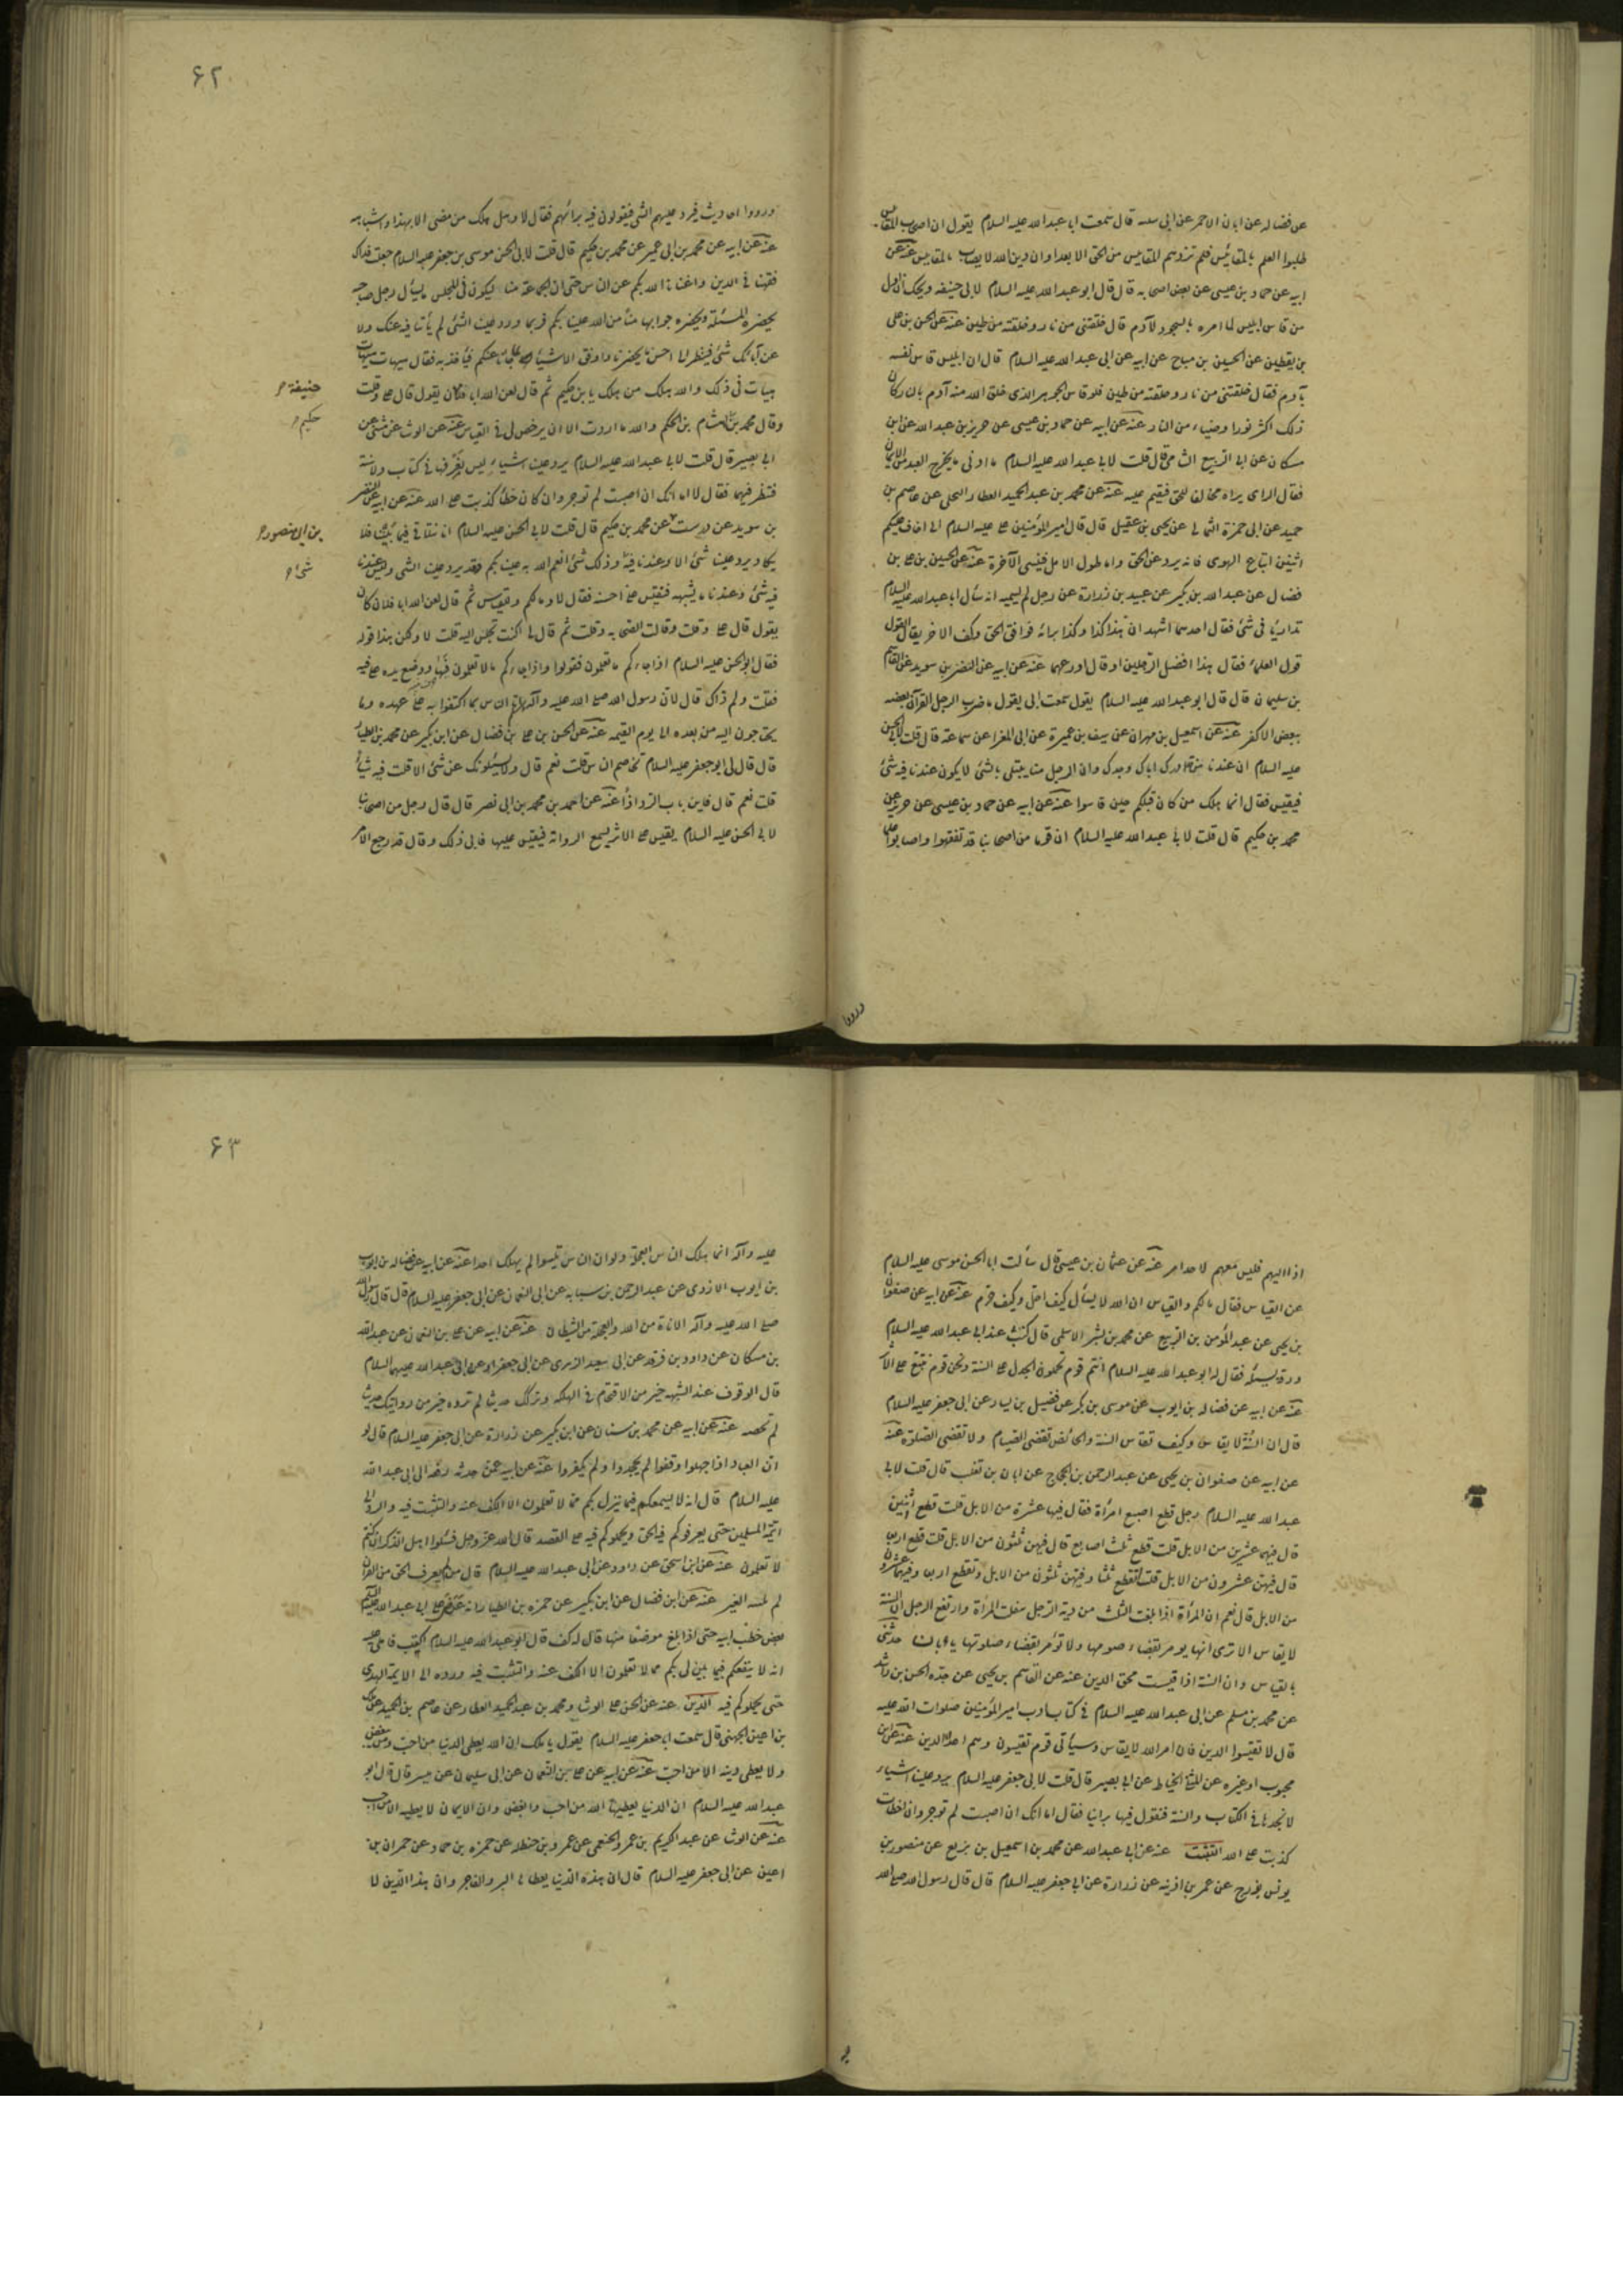 عن فضاله عن ابان الاحمر عن ابى قال سمعت ابا عبدالله عليه السلام يقول ان اصحاب المقائيس
طلبوا العلم بالمقائيس فلم تزدهم المقائيس من الحق الا بعدا وان دين الله لا يصاب بالمقائيس عنه عن
ابيه عن حماد بن عيسى عن بعض اصحابه قال قال ابو عبدالله عليه السلام لابى حنيفه ويحك ان اول
من قاس ابليس لما امره بالسجود لآدم قال خلقتنى من نار وخلقته من طين عنه عن الحسن بن على
بن يقطين عن الحسين بن مياح عن ابيه عن ابى عبدالله عليه السلام قال ان ابليس قاس نفسه
بآدم فقال خلقتنى من نار وخلقته من طين فلو قاس الجوهر الذى خلق الله منه آدم بالنار كان
ذلك اكثر نورا وضياء من النار عنه عن ابيه عن حماد بن عيسى عن حريز بن عبدالله عن ابن
مسكان عن ابى الربيع الشامى قال قلت لابى عبدالله عليه السلام ما ادنى ما يخرج العبد من الايمان
فقال الراى يراه مخالفا للحق فيقيم عليه عنه عن محمد بن عبد الحميد العطار البجلى عن عاصم بن
حميد عن ابى حمزة الثمالى عن يحيى بن عقيل قال قال امير المؤمنين ع عليه السلام انى اخاف عليكم
اثنين اتباع الهوى فانه يرد عن الحق واما طول الامل فينسى الآخرة عنه عن الحسين بن ع بن
فضال عن عبدالله بن بكير عن عبيد بن زرارة عن رجل لم يسمه انه سأل ابا عبدالله عليه السلام
تدارئا فى شئ فقال احدهما اشهد ان هذا كذا وكذا برائه فوافق الحق وكف الآخر يقال القول
قول العلماء فقال هذا افضل الرجلين او قال اورعهما عنه عن ابيه عن النضر بن سويد عن القاسم
بن سليمان قال قال ابو عبدالله عليه السلام يقول سمعت ابى يقول ما ضرب الرجل القرآن بعضه
ببعض الا كفر عنه عن اسمعيل بن مهران عن سيف بن عميرة عن ابى المغرا عن سماعة قال قلت لابى الحسن
عليه السلام ان عندنا من قد ادرك اباك وجدك وان الرجل منا يبتلى بالشئ لا يكون عندنا فيه شئ
فيقيس فقال انما هلك من كان قبلكم حين قاسوا عنه عن ابيه عن حماد بن عيسى عن حريز عن
محمد بن حكيم قال قلت لابى عبدالله عليه السلام ان قوما من اصحابنا قد تفقهوا واصابوا علما
ورووا
۶۲
ورووا احاديث فيرد عليهم الشئ فيقولون فيه برائهم فقال لا وهل هلك من مضى الا بهذا واشباهه
عنه عن ابيه عن محمد بن ابى عمير عن محمد بن حكيم قال قلت لابى الحسن موسى بن جعفر عليه السلام جعلت فداك
فقهنا فى الدين واغنانا الله بكم عن الناس حتى ان الجماعة منا ليكون فى المجلس يسأل رجل صاحبه
يحضره المسئلة ويحضره جوابها منا من الله علينا بكم فربما ورد علينا الشئ لم يأتنا فيه عنك ولا
عن آبائك شئ فينظر الى احسن ما يحضرنا واوفق الاشياء لما جائنا عنكم فنأخذ به فقال هيهات هيهات
هيهات فى ذلك والله هلك من هلك يا بن حكيم ثم قال لعن الله ابا فكان يقول قال ع وقلت
وقال محمد بن لهشام بن الحكم والله ما اردت الا ان يرخص لى فى القياس عنه عن الوشا عن مثنى عن
ابى بصير قال قلت لابى عبدالله عليه السلام يرد علينا اشياء ليس نعرفها فى كتاب ولا سنة
فننظر فيها فقال لا اما انك ان اصبت لم توجر وان كان خطأ كذبت ع الله عنه عن ابيه عن النضر
بن سويد عن درست عن محمد بن حكيم قال قلت لابى الحسن عليه السلام انا نتلاقى فيما بيننا فلا
يكاد يرد علينا شئ الا وعندنا فيه وذلك شئ انعم الله به علينا بكم فقد يرد علينا الشئ وليس عندنا
فيه شئ وعندنا ما يشبهه فنقيس ع احسنه فقال لا وما لكم وللقياس ثم قال لعن الله ابا فلان كان
يقول قال ع وقلت وقالت الصحابه وقلت ثم قال لى اكنت تجلس اليه قلت لا ولكن هذا قوله
فقال ابو الحسن عليه السلام اذا جاءكم ما تعلمون فقولوا واذا جاءكم ما لا تعلمون فها ووضع يده ع فيه
فقلت ولم ذاك قال لان رسول الله صلى الله عليه وآله اتى الناس بما اكتفوا به ع عهده وما
يحتاجون اليه من بعده الى يوم القيمه عنه عن الحسن بن ع بن فضال عن ابن بكير عن محمد بن الطيار
قال قال لى ابو جعفر عليه السلام تخاصم الناس قلت نعم قال ولا يسئلونك عن شئ الا قلت فيه شيئا
قلت نعم قال فاين باب الرد اذا عنه عن احمد بن محمد بن ابى نصر قال قال رجل من اصحابنا
لابى الحسن عليه السلام يقيس ع الاثر يسمع الرواية فيقيس عليها فابى ذلك وقال قد رجع الامر
حنيفة
حكيم
بن ابى منصور
شئ
اذا اليهم فليس معهم لاحد امر عنه عن عثمان بن عيسى قال سألت ابا الحسن موسى عليه السلام
عن القياس فقال مالكم والقياس ان الله لا يسأل كيف احل وكيف حرم عنه عن ابيه عن صفوان
بن يحيى عن عبد المؤمن بن الربيع عن محمد بن بشر الاسلمى قال كنت عند ابى عبدالله عليه السلام
وورقة يسئله فقال له ابو عبدالله عليه السلام انتم قوم تحملون الحلال ع السنة ونحن قوم نتبع ع الاثر
عنه عن ابيه عن فضاله بن ايوب عن موسى بن بكر عن فضيل بن يسار عن ابى جعفر عليه السلام
قال ان السنة لا يقاس وكيف تقاس السنة والحائض تقضى الصيام ولا تقضى الصلوة عنه
عن ابيه عن صفوان بن يحيى عن عبد الرحمن بن الحجاج عن ابان بن تغلب قال قلت لابى
عبدالله عليه السلام رجل قطع اصبع امرأة فقال فيها عشرة من الابل قلت قطع اثنين
قال فيهما عشرين من الابل قلت قطع ثلث اصابع قال فيهن ثلثون من الابل قلت قطع اربعا
قال فيهن عشرون من الابل قلت ايقطع ثلثا وفيهن ثلثون من الابل وتقطع اربعا وفيها عشرون
من الابل قال نعم ان المرأة اذا بلغت الثلث من دية الرجل سفلت المرأة وارتفع الرجل ان السنة
لا يقاس الا ترى انها يومر بقضاء صومها ولا تؤمر بقضاء صلوتها يا ابان حدثنى
بالقياس وان السنة اذا قيست محق الدين عنه عن القاسم بن يحيى عن جده الحسن بن راشد
عن محمد بن مسلم عن ابى عبدالله عليه السلام فى كتاب ادب امير المؤمنين صلوات الله عليه
قال لا تقيسوا الدين فان امر الله لا يقاس وسيأتى قوم تقيسون وهم اعداء الدين عنه عن ابن
محبوب او غيره عن المثنى الخياط عن ابى بصير قال قلت لابى جعفر عليه السلام يرد علينا اشياء
لا نجدها فى الكتاب والسنة فنقول فيها براينا فقال اما انك ان اصبت لم توجر وان اخطات
كذبت ع الله التثبت عنه عن ابى عبدالله عن محمد بن اسمعيل بن بزيع عن منصور بن
يونس بزرج عن عمر بن اذينه عن زرارة عن ابى جعفر عليه السلام قال قال رسول الله صلى الله
۶۳
عليه وآله انما هلك الناس العجلة ولو ان الناس تثبتوا لم يهلك احد عنه عن ابيه عن فضاله بن ايوب
بن ايوب الازدى عن عبد الرحمن بن سيابه عن ابى النعمان عن ابى جعفر عليه السلام قال قال رسول الله
صلى الله عليه وآله الاناة من الله والعجلة من الشيطان عنه عن ابيه عن ع بن النعمان عن عبدالله
بن مسكان عن داود بن فرقد عن ابى سعيد الزهرى عن ابى جعفر او عن ابى عبدالله عليهما السلام
قال الوقوف عند الشبهه خير من الاقتحام فى الهلكه وتركك حديثا لم تروه خير من روايتك حديثا
لم تحصه عنه عن ابيه عن محمد بن سنان عن ابن بكير عن زرارة عن ابى جعفر عليه السلام قال لو
ان العباد اذا جهلوا وقفوا لم يجحدوا ولم يكفروا عنه عن ابيه عمن حدثه رفعه الى ابى عبدالله
عليه السلام قال انه لا يسعكم فيما ينزل بكم مما لا تعلمون الا الكف عنه والتثبت فيه والرد الى
ائمة المسلمين حتى يعرفوكم فيه الحق ويحملوكم فيه ع القصد قال الله عز وجل فسئلوا اهل الذكر ان كنتم
لا تعلمون عنه عن ابن اسحق عن داود عن ابى عبدالله عليه السلام قال من لم يعرف الحق من القرآن
لم الغير عنه عن ابن فضال عن ابن بكير عن حمزه بن الطيار انه عرض ع ابى عبدالله عليه السلام
بعض خطب ابيه حتى اذا بلغ موضعا منها قال له كف قال ابو عبدالله عليه السلام اكتب فاملى عليه
انه لا ينفعكم فيما ينزل بكم مما لا تعلمون الا الكف عنه والتثبت فيه ورده الى الائمة الهدى
حتى يحملوكم فيه الدين عنه عن الحسن ع الوشا ومحمد بن عبد الحميد العطار عن عاصم بن الحميد عن مالك
بن اعين الجهنى قال سمعت ابا جعفر عليه السلام يقول يا مالك ان الله يعطى الدنيا من احب ومن يبغض
ولا يعطى دينه الا من احب عنه عن ابيه عن ع بن النعمان عن ابى سليمان عن ميسر قال قال ابو
عبدالله عليه السلام ان الدنيا يعطيها الله من احب وابغض وان الايمان لا يعطيه الا من احب
عنه عن الوشا عن عبد الكريم بن عمرو الخثعمى عن عمرو بن حنظله عن حمزه بن حماد عن حمران بن
اعين عن ابى جعفر عليه السلام قال ان هذه الدنيا يعطاها البر والفاجر وان هذا الدين لا